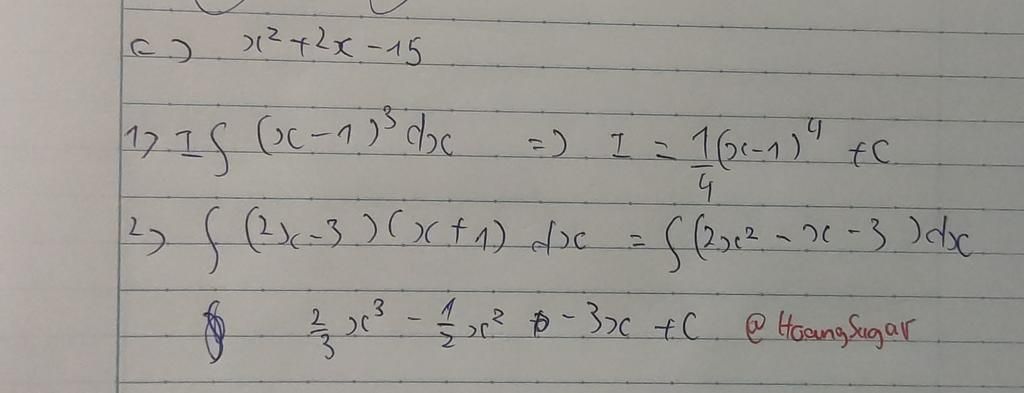 c) x² + 2x - 15
1) I ∫ (x - 1)³ dx => I = 1/4 (x - 1)⁴ + C
2) ∫ (2x - 3)(x + 1) dx = ∫ (2x² - x - 3) dx
2/3 x³ - 1/2 x² - 3x + C @HoangSugar